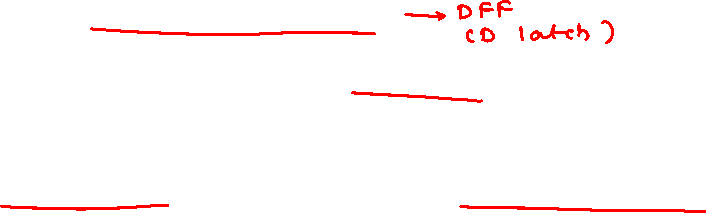 → DFF
(D latch)